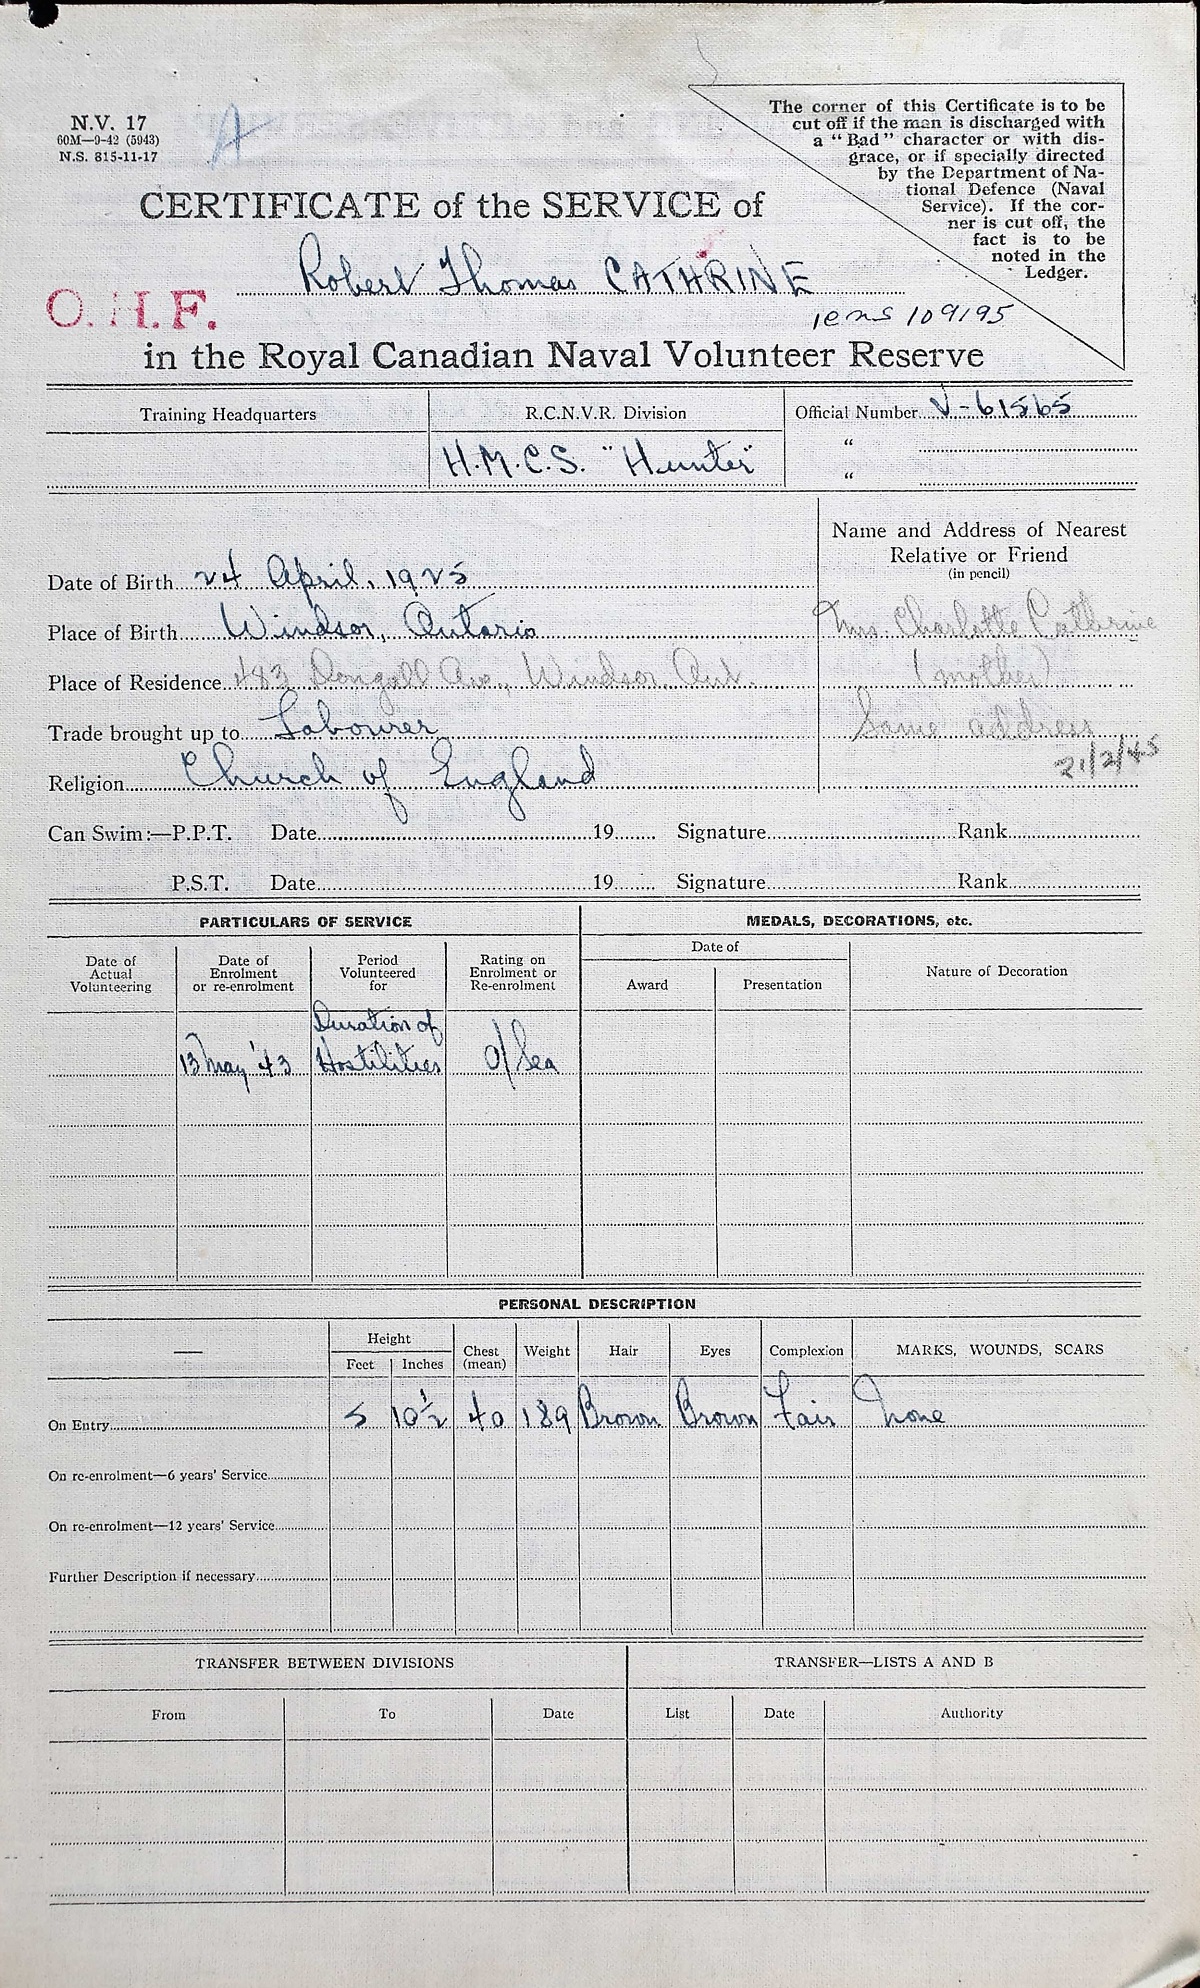 N.V. 17
60M—9-42 (5943)
N.S. 815-11-17
A
The corner of this Certificate is to be
cut off if the man is discharged with
a "Bad" character or with dis-
grace, or if specially directed
by the Department of Na-
tional Defence (Naval
Service). If the cor-
ner is cut off, the
fact is to be
noted in the
Ledger.
CERTIFICATE of the SERVICE of
Robert Thomas CATHRINE
O.H.F.
109195
in the Royal Canadian Naval Volunteer Reserve
Training Headquarters
R.C.N.V.R. Division
H.M.C.S. "Hunter"
Official Number V-61565
"
"
Name and Address of Nearest
Relative or Friend
(in pencil)
Mrs. Charlotte Cathrine
(mother)
Same address
21/2/45
Date of Birth 24 April, 1925
Place of Birth Windsor, Ontario
Place of Residence 483 Dougall Ave., Windsor, Ont.
Trade brought up to Labourer
Religion Church of England
Can Swim:—P.P.T. Date 19 Signature Rank
P.S.T. Date 19 Signature Rank
PARTICULARS OF SERVICE
Date of
Actual
Volunteering
Date of
Enrolment
or re-enrolment
Period
Volunteered
for
Rating on
Enrolment or
Re-enrolment
13 May '43
Duration of
Hostilities
O/Sea
MEDALS, DECORATIONS, etc.
Date of
Award
Presentation
Nature of Decoration
PERSONAL DESCRIPTION
—
Height
Feet Inches
Chest
(mean)
Weight
Hair
Eyes
Complexion
MARKS, WOUNDS, SCARS
On Entry 5 10½ 40 189 Brown Brown Fair None
On re-enrolment—6 years' Service
On re-enrolment—12 years' Service
Further Description if necessary
TRANSFER BETWEEN DIVISIONS
From To Date
TRANSFER—LISTS A AND B
List Date Authority